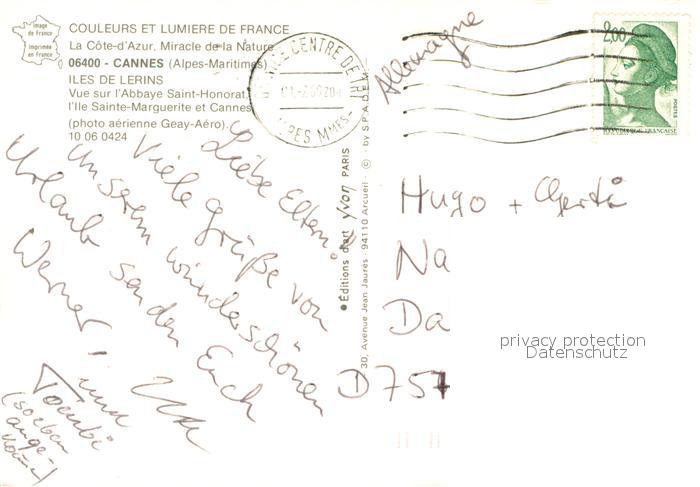 Image
de France
Imprimée
en France
COULEURS ET LUMIERE DE FRANCE
La Côte-d'Azur, Miracle de la Nature
06400 - CANNES (Alpes-Maritimes)
ILES DE LERINS
Vue sur l'Abbaye Saint-Honorat,
l'Ile Sainte-Marguerite et Cannes
(photo aérienne Geay-Aéro).
10 06 0424
CENTRE DE TRI
Allemagne
2,00
POSTES
Liebe Eltern!
Viele Grüße von
unserem wunderschönen
Urlaub senden Euch
Werner, und
(soeben
ange-
Éditions d'art yvon PARIS
30, Avenue Jean Jaurès - 94110 Arcueil - © - by S.P.A.D.E.M.
Hugo +
Na
Da
D 751
privacy protection
Datenschutz